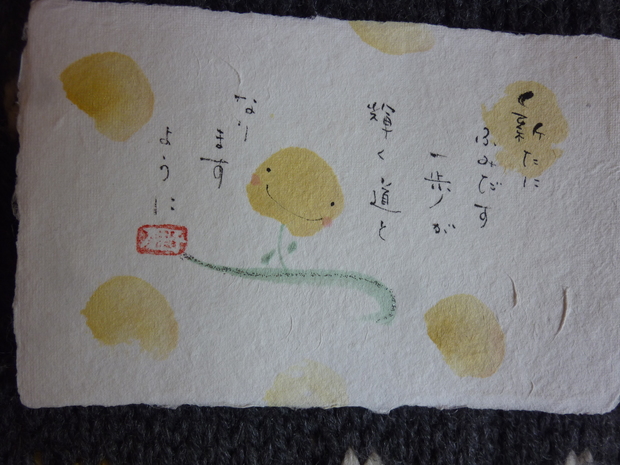 ふみだす
一歩が
輝く道と
なります
ように